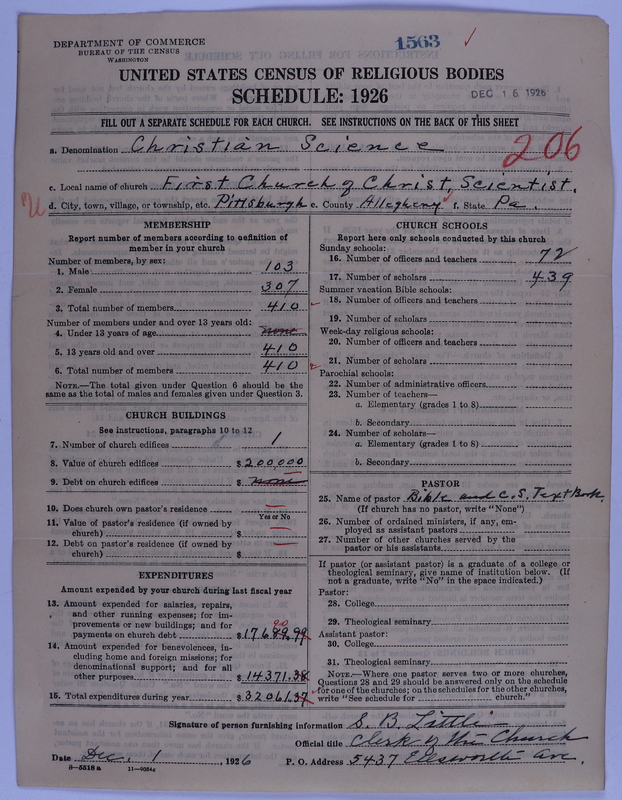 DEPARTMENT OF COMMERCE
BUREAU OF THE CENSUS
WASHINGTON
1563
UNITED STATES CENSUS OF RELIGIOUS BODIES
SCHEDULE: 1926
DEC 16 1926
FILL OUT A SEPARATE SCHEDULE FOR EACH CHURCH. SEE INSTRUCTIONS ON THE BACK OF THIS SHEET
a. Denomination Christian Science
206
c. Local name of church First Church of Christ, Scientist.
d. City, town, village, or township, etc. Pittsburgh e. County Allegheny f. State Pa.
MEMBERSHIP
Report number of members according to definition of
member in your church
Number of members, by sex:
1. Male 103
2. Female 307
3. Total number of members 410
Number of members under and over 13 years old:
4. Under 13 years of age none
5. 13 years old and over 410
6. Total number of members 410
NOTE.—The total given under Question 6 should be the
same as the total of males and females given under Question 3.
CHURCH BUILDINGS
See instructions, paragraphs 10 to 12
7. Number of church edifices 1
8. Value of church edifices $200,000
9. Debt on church edifices $ none
10. Does church own pastor's residence
Yes or No
11. Value of pastor's residence (if owned by
church) $
12. Debt on pastor's residence (if owned by
church) $
EXPENDITURES
Amount expended by your church during last fiscal year
13. Amount expended for salaries, repairs,
and other running expenses; for im-
provements or new buildings; and for
payments on church debt $17689.99
14. Amount expended for benevolences, in-
cluding home and foreign missions; for
denominational support; and for all
other purposes $14371.38
15. Total expenditures during year $32061.37
CHURCH SCHOOLS
Report here only schools conducted by this church
Sunday schools:
16. Number of officers and teachers 72
17. Number of scholars 439
Summer vacation Bible schools:
18. Number of officers and teachers
19. Number of scholars
Week-day religious schools:
20. Number of officers and teachers
21. Number of scholars
Parochial schools:
22. Number of administrative officers
23. Number of teachers—
a. Elementary (grades 1 to 8)
b. Secondary
24. Number of scholars—
a. Elementary (grades 1 to 8)
b. Secondary
PASTOR
25. Name of pastor Bible and C.S. Text Book.
(If church has no pastor, write "None")
26. Number of ordained ministers, if any, em-
ployed as assistant pastors
27. Number of other churches served by the
pastor or his assistants
If pastor (or assistant pastor) is a graduate of a college or
theological seminary, give name of institution below. (If
not a graduate, write "No" in the space indicated.)
Pastor:
28. College
29. Theological seminary
Assistant pastor:
30. College
31. Theological seminary
NOTE.—Where one pastor serves two or more churches,
Questions 28 and 29 should be answered only on the schedule
for one of the churches; on the schedules for the other churches,
write "See schedule for church."
Signature of person furnishing information S. B. Little
Official title Clerk of the Church
Date Dec. 1, 1926 P. O. Address 5437 Ellsworth Ave.
8—5518a 11—9084